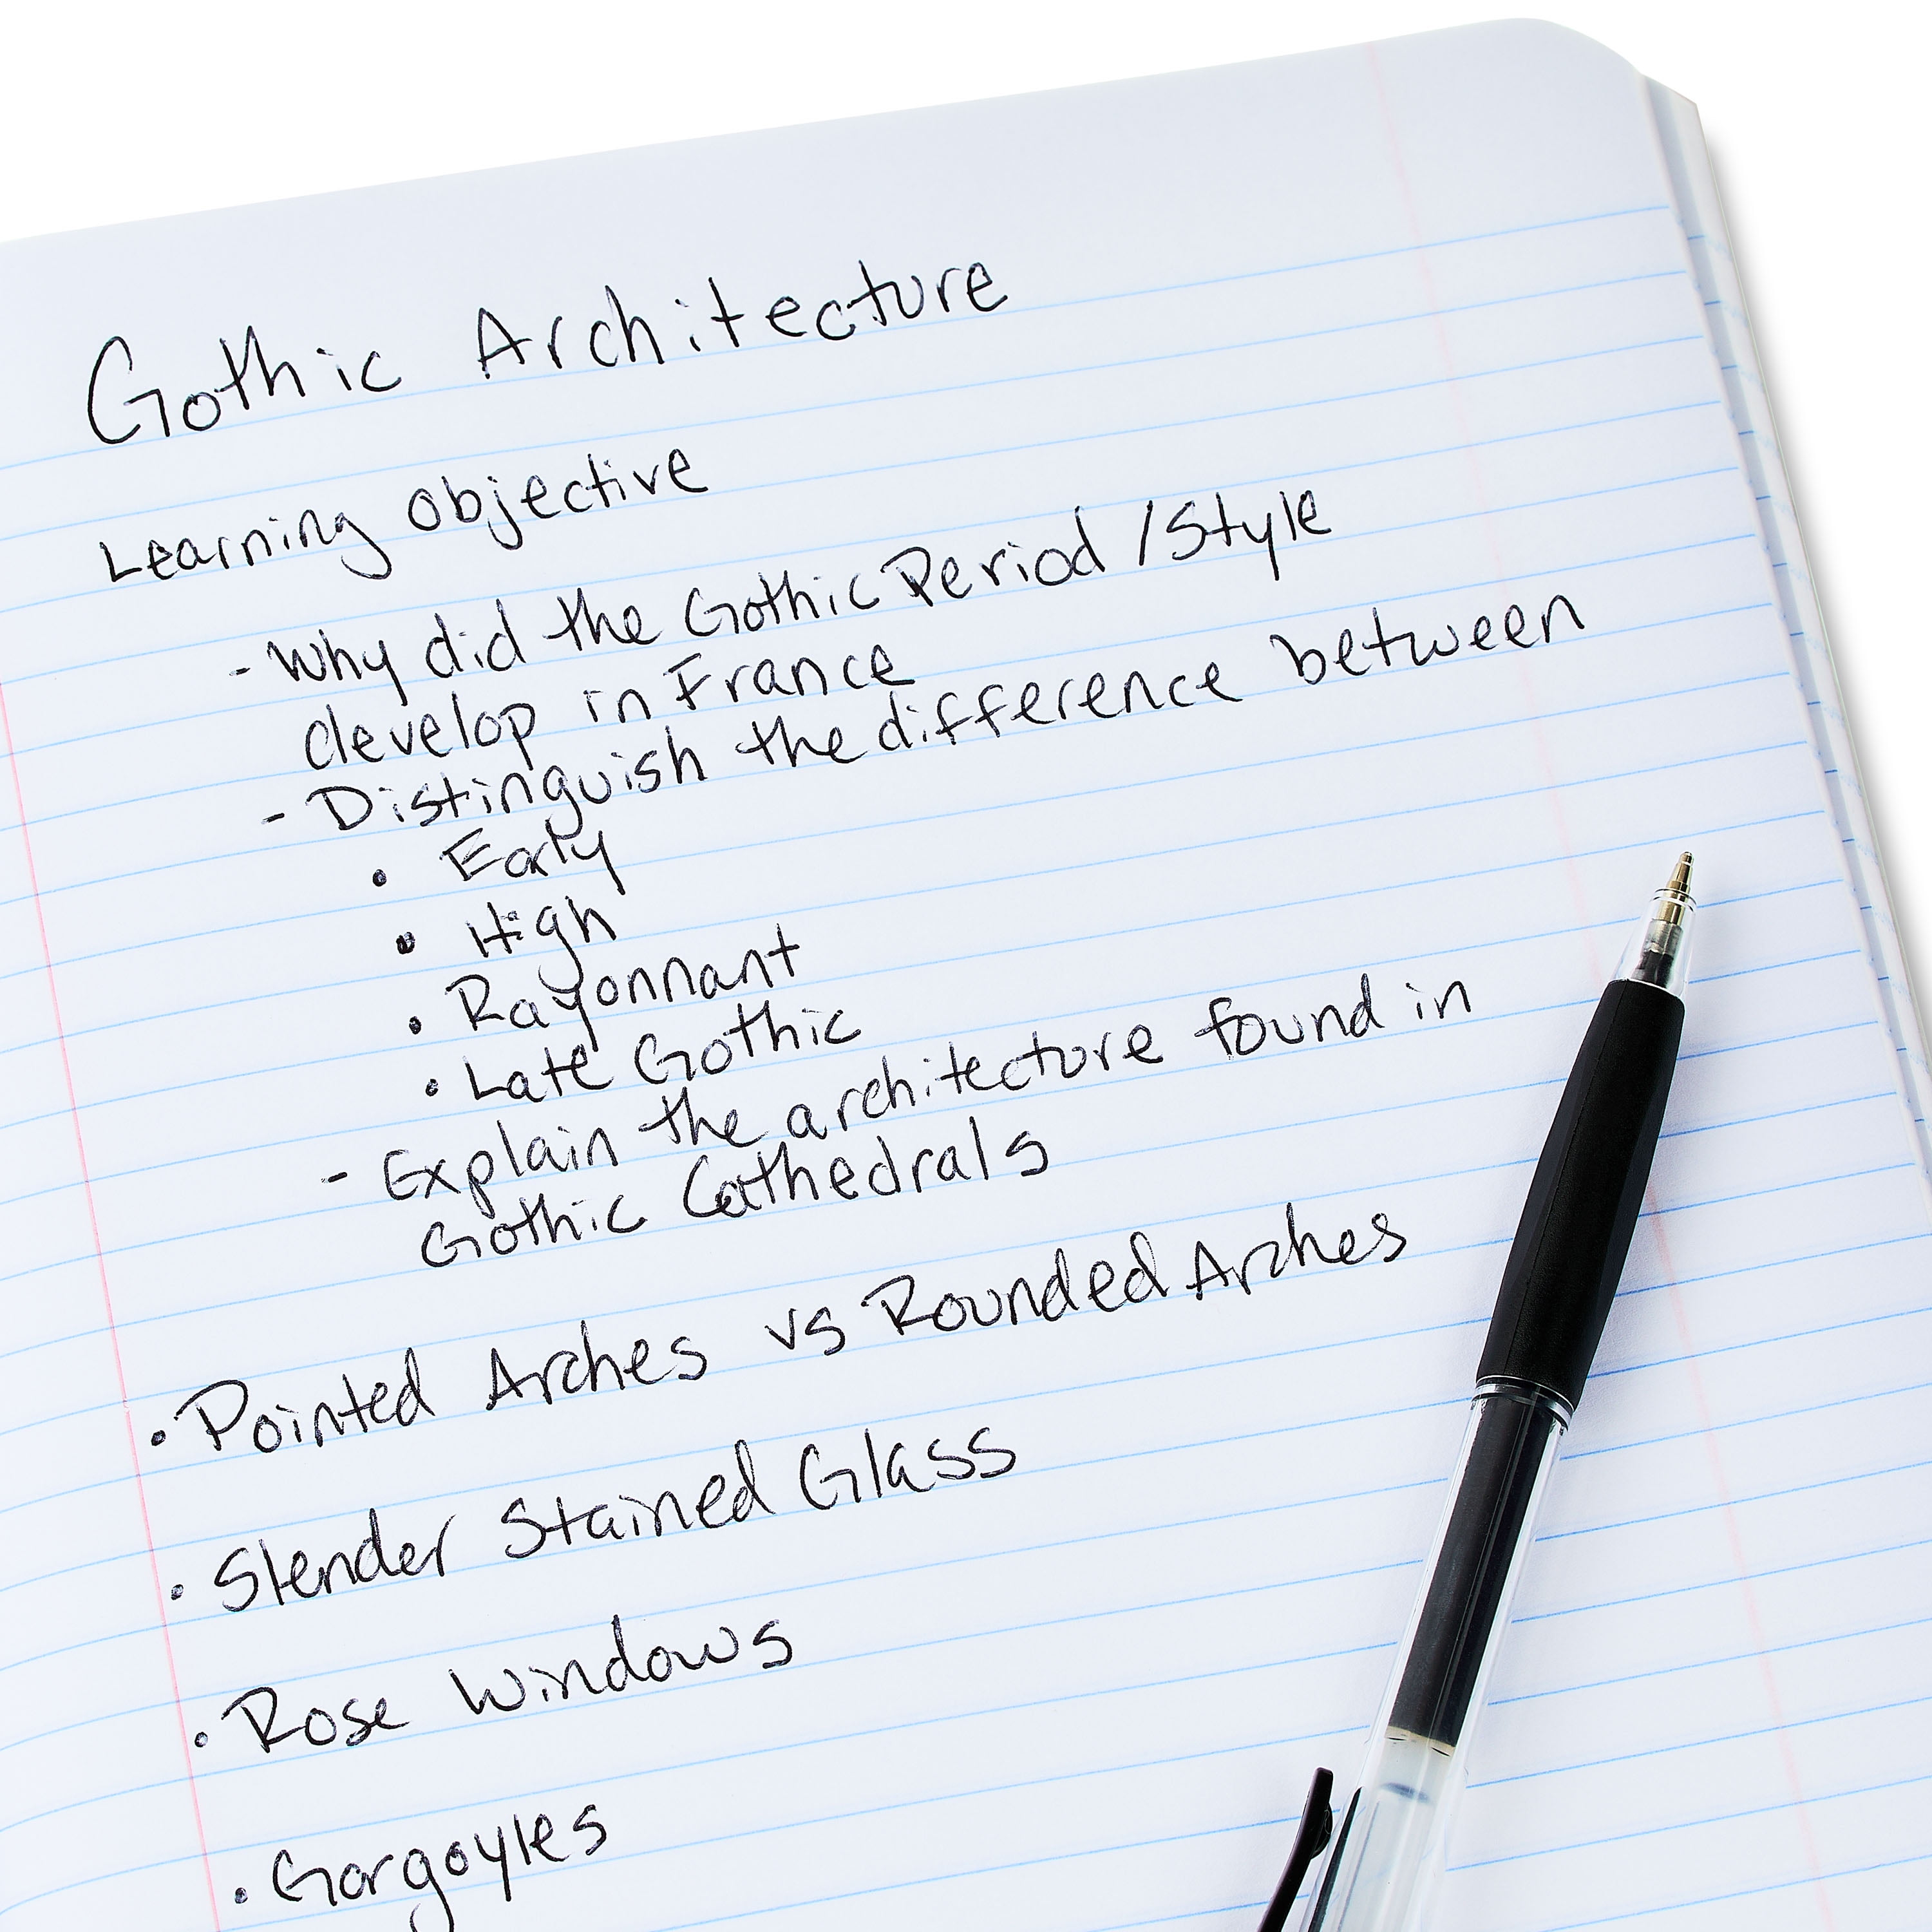 Gothic Architecture
Learning objective
- Why did the Gothic Period / Style
develop in France
- Distinguish the difference between
• Early
• High
• Rayonnant
• Late Gothic
- Explain the architecture found in
Gothic Cathedrals
• Pointed Arches vs Rounded Arches
• Slender Stained Glass
• Rose Windows
• Gargoyles